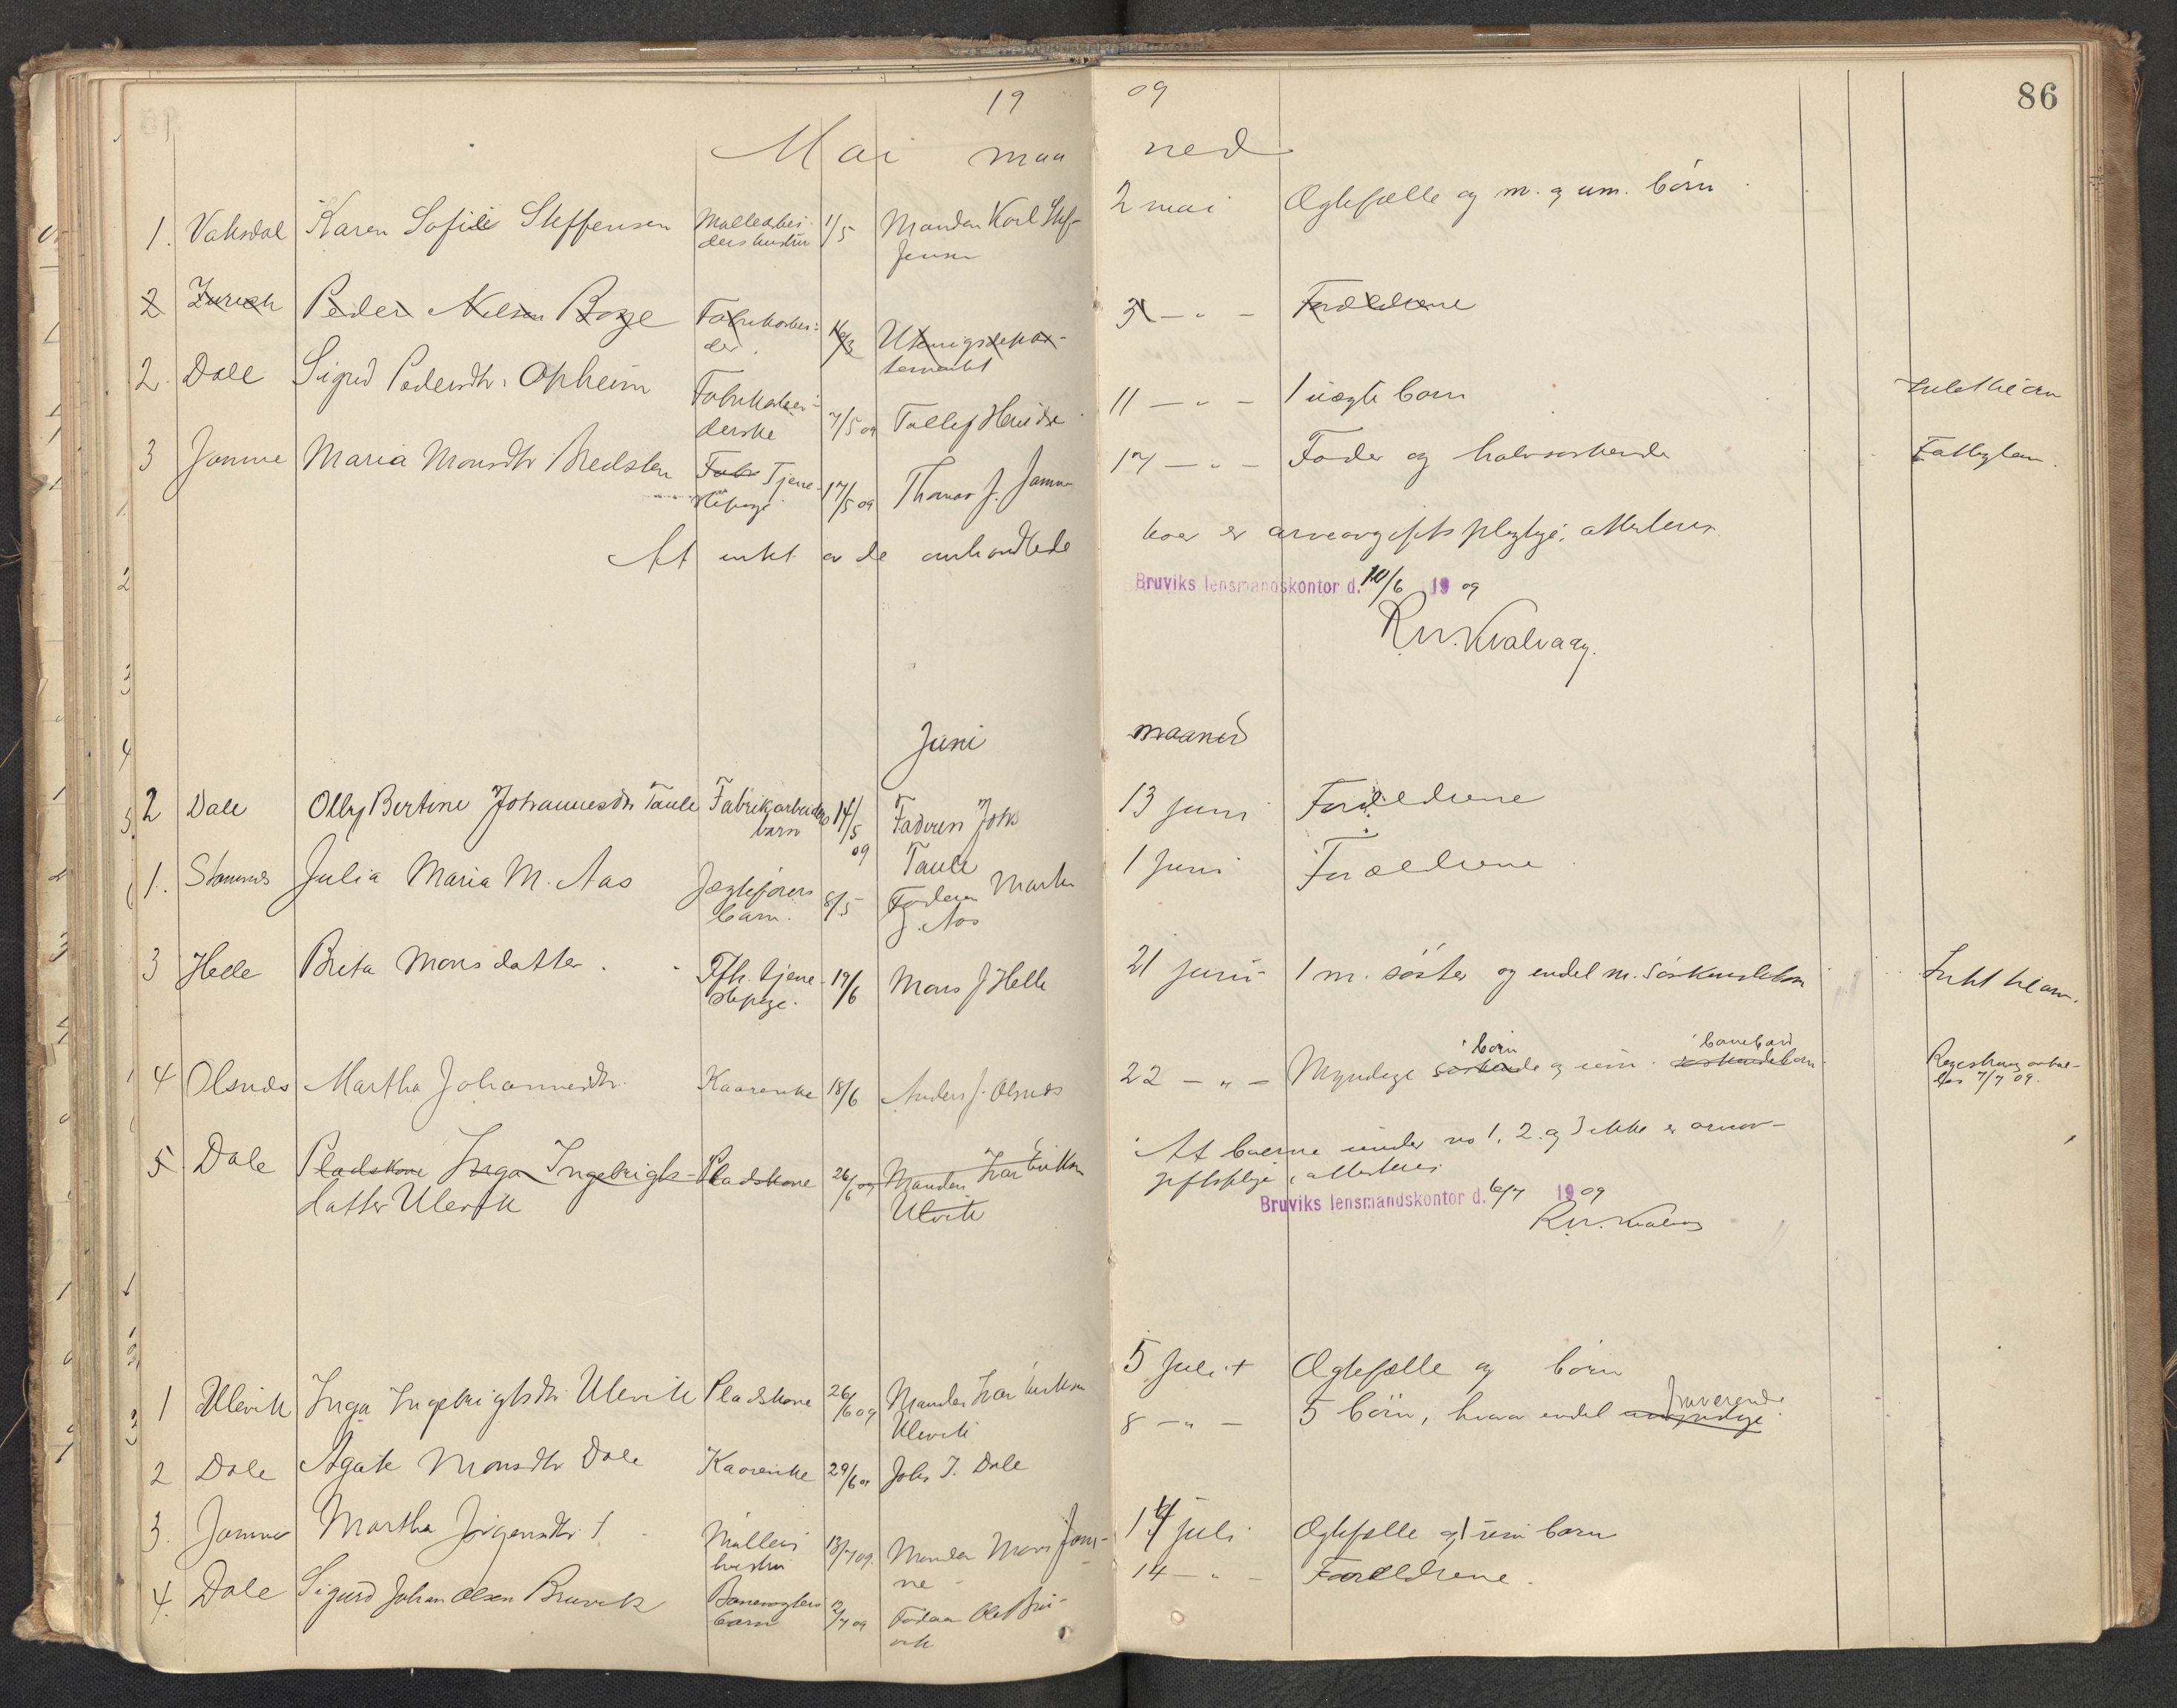 19 09
86
Mai maa ned
1. Vaksdal Karen Sofie Steffensen Møllearbei- 1/5 Manden Karl Stef- 2 mai Ægtefælle og m. og um. børn
ders hustru fensen
2 Zurich Peder Nilsen Fabrikarbei- Utenrigsdepar- 3 — " — Forældrene
der. tementet
2. Dale Sigrid Pedersdtr. Opheim Fabrikarbei- 7/5 09 11 — " — 1 uægte barn
derske
3 Jamne Maria Monsdtr Bredsten Fabr Tjene- 17/5 09 Thomas J. Jamne 17 — " — Fader og halvsøskende Fattiglem.
stepige
At intet av de anholdte
boer er arveavgiftspligtige, attesteres.
Bruviks lensmandskontor d. 10/6 19 09
R. W. Kvalvaag.
Juni maaned
2 Dale Olby Bertine Johannesdtr Taule Fabrikarbeiders 14/5 Faderen Johs 13 juni Forældrene
barn 09 Taule
1. Stamnes Julia Maria M. Aas Jægteførers 8/5 Faderen Martin 1 Juni Forældrene
barn. J. Aas
3 Helle Brita Monsdatter. Fh. tjene- 19/6 Mons J Helle 21 juni 1 m. søster og endel m. Søskendebørn
stepige.
børn barnebarn
4 Olsnes Martha Johannesdtr. Kaarenke 18/6 Anders J. Olsnes 22 — " — Myndige søskende og um. søskendebarn
5 Dale Pladskone Inga Ingebrigts- Pladskone 26/6 09 Manden Ivar Erikson
datter Ulevik Ulevik
At boerne under no 1, 2 og 3 ikke er arveav-
giftspligtige, attesteres
Bruviks lensmandskontor d. 6/7 19 09
R. W. Kvalvaag
1 Ulevik Inga Ingebrigtsdtr. Ulevik Pladskone 26/6 09 Manden Ivar Erikson 5 Juli Ægtefælle og børn
Ulevik
fraværende
2 Dale Agate Monsdtr Dale Kaarenke 29/6 09 Johs J. Dale 8 — " — 5 børn, hvorav endel umyndige
3. Jamne Martha Jørgensdtr. Møllers 13/7 09. Manden Mons Jam- 14 juli Ægtefælle og 1 um barn
hustru ne
4. Dale Sigurd Johan Olsen Bruvik Banevogters 12/7 09 Faderen Olaf Bru- 14 — " — Forældrene.
barn vik